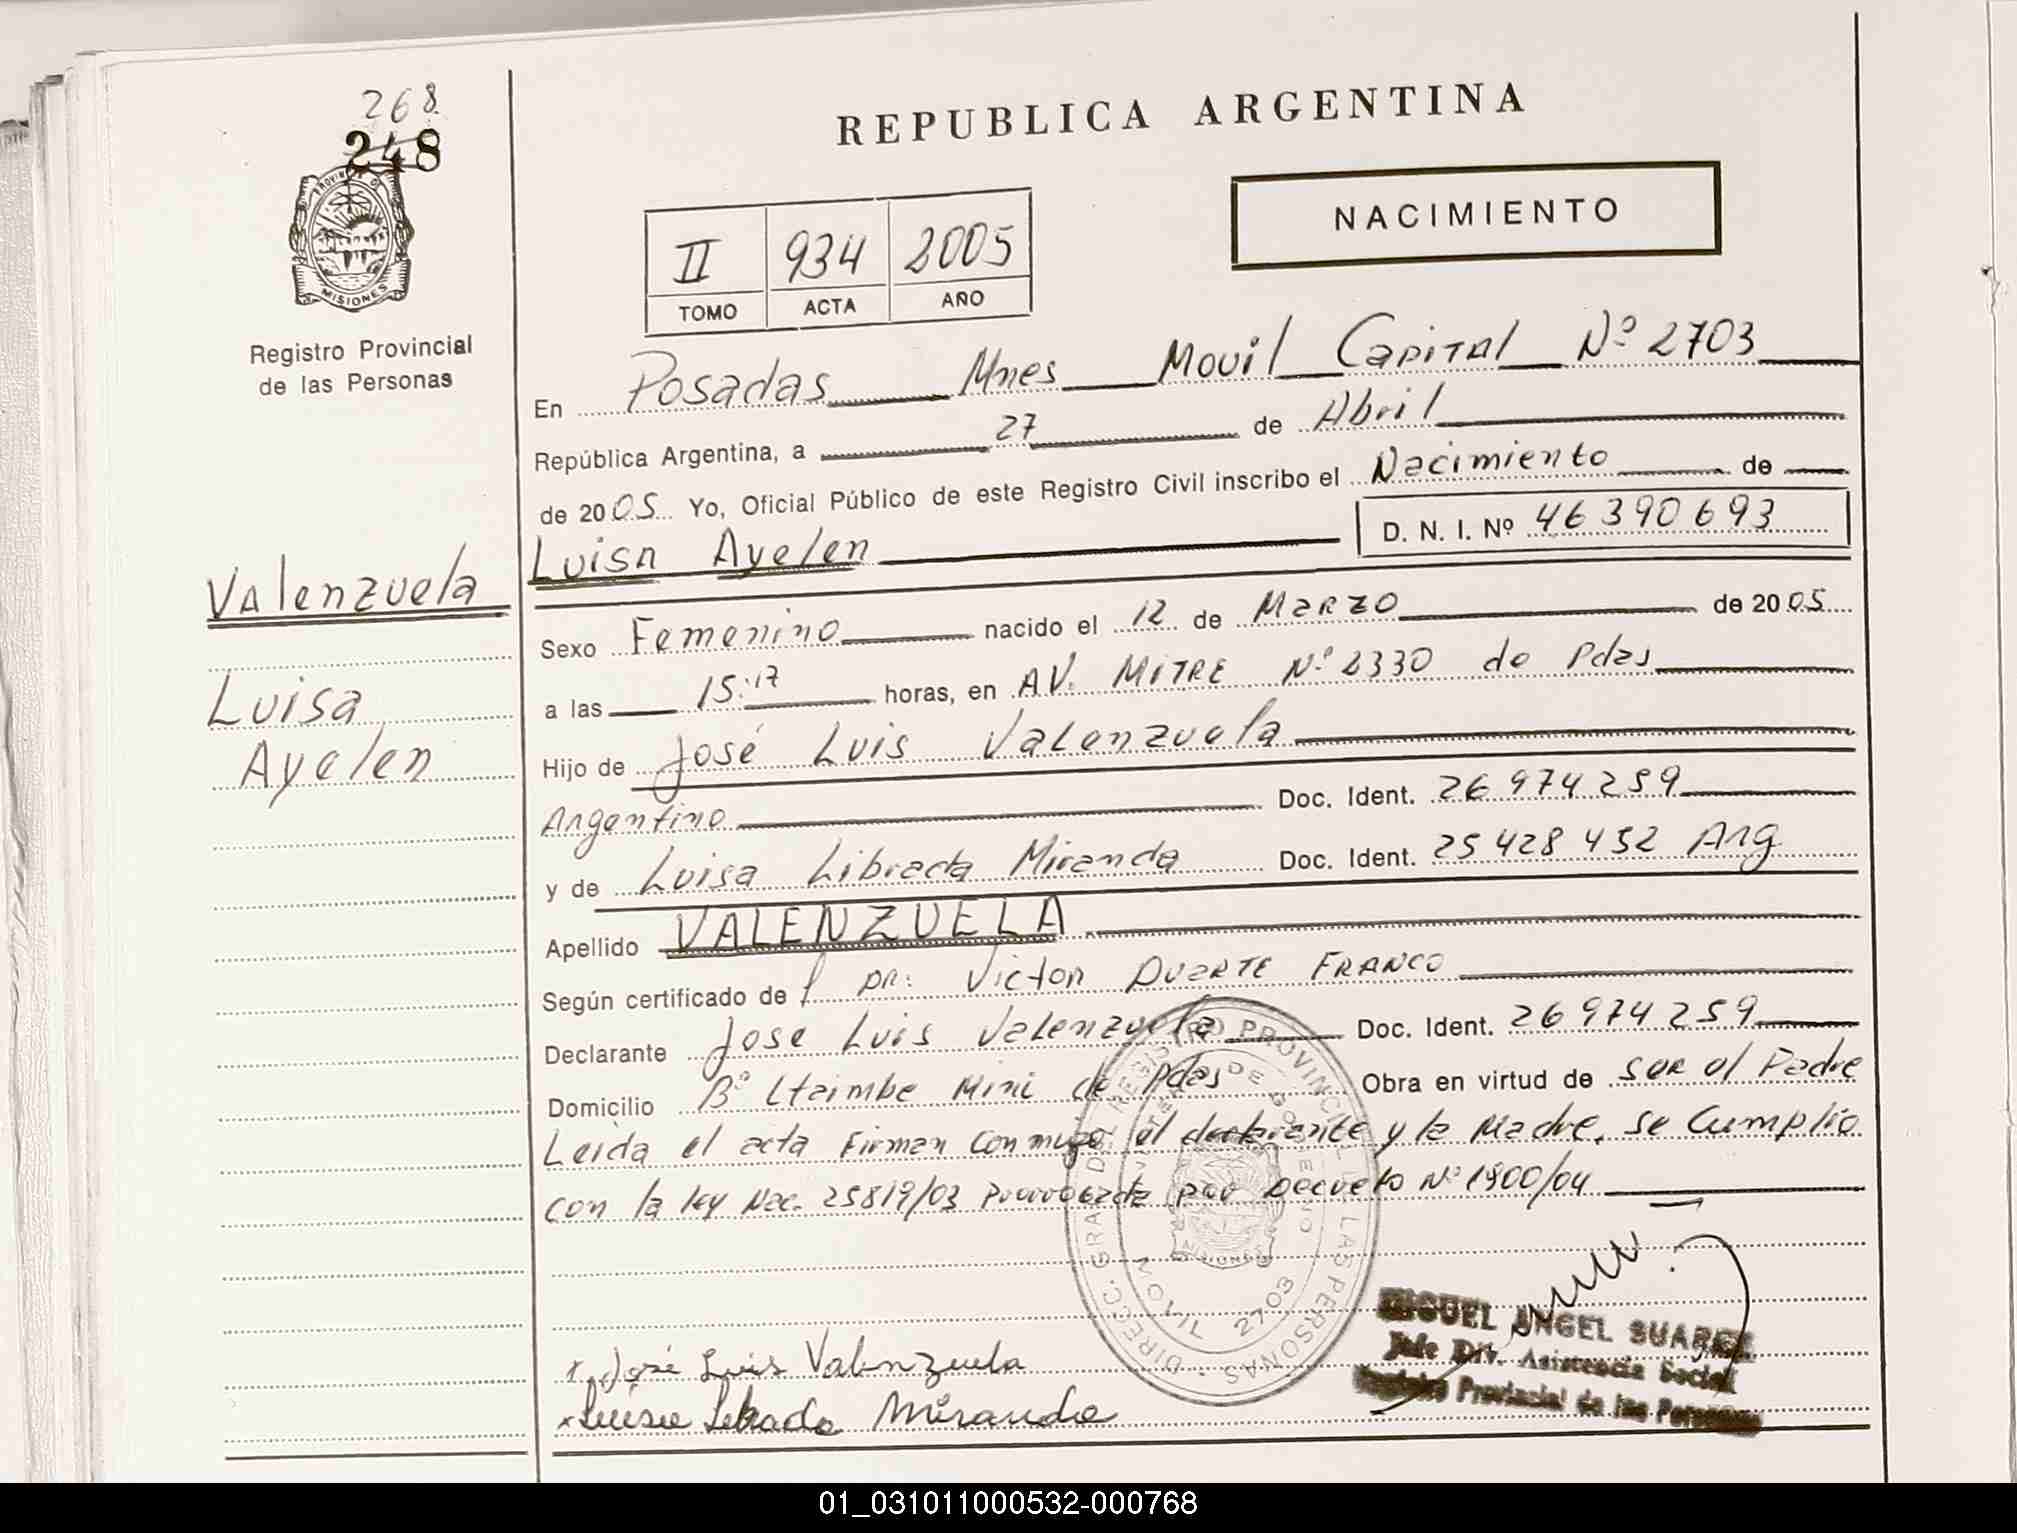 268
248
PROVINCIA DE
MISIONES
Registro Provincial
de las Personas
Valenzuela
Luisa
Ayelen
REPUBLICA ARGENTINA
NACIMIENTO
II 934 2005
TOMO ACTA AÑO
En Posadas Mnes Movil Capital Nº 2703
República Argentina, a 27 de Abril
de 2005 Yo, Oficial Público de este Registro Civil inscribo el Nacimiento de
Luisa Ayelen D. N. I. Nº 46390693
Sexo Femenino nacido el 12 de Marzo de 2005
a las 15:17 horas, en AV. MITRE Nº 2330 de Pdas
Hijo de José Luis Valenzuela
Argentino Doc. Ident. 26974259
y de Luisa Librada Miranda Doc. Ident. 25428452 Arg
Apellido VALENZUELA
Según certificado de DR: Victor DUARTE FRANCO
Declarante Jose Luis Valenzuela Doc. Ident. 26974259
Domicilio Bº Itaimbe Mini de Pdas Obra en virtud de ser el Padre
Leida el acta Firman conmigo el declarante y la Madre, se Cumplio
con la ley Nac. 25819/03 Prorrogada por Decreto Nº 1900/04
DIRECC. GRAL. DEL REGISTRO PROVINCIAL DE LAS PERSONAS
DE GOBIERNO
MOVIL 2703
MISIONES
x José Luis Valenzuela
x Luisa Librada Miranda
MIGUEL ANGEL SUAREZ
Jefe Div. Asistencia Social
Registro Provincial de las Personas
01_031011000532-000768